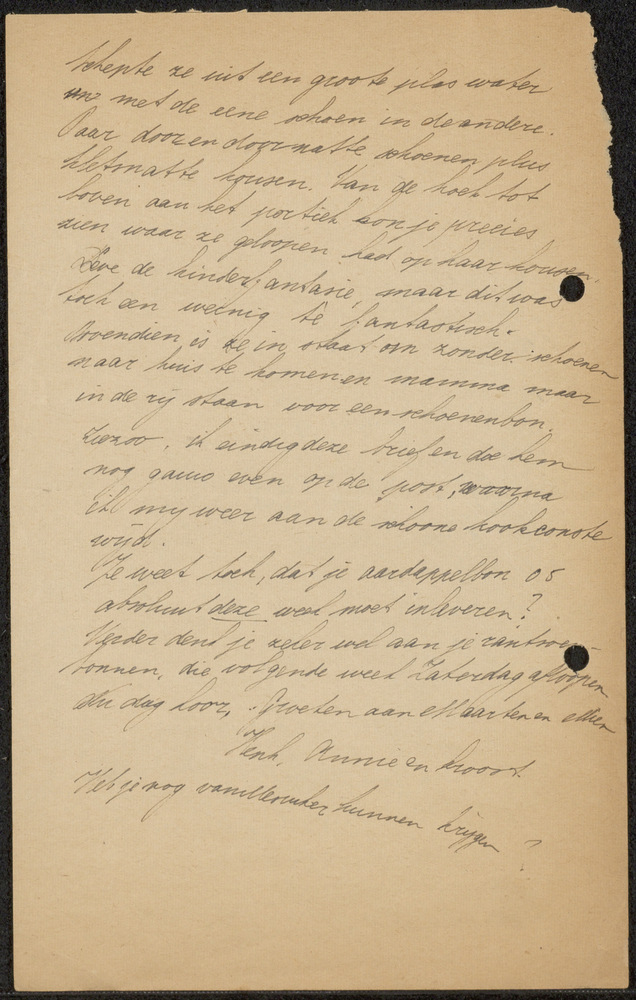 schepte ze uit een groote plas water
met de eene schoen in de andere.
Paar door en door natte schoenen plus
kletsnatte kousen. Van de hoek tot
boven aan het portiek kon je precies
zien waar ze geloopen had op haar kousen.
Leve de kinderfantasie, maar dit was
toch een weinig te fantastisch.
Bovendien is ze in staat om zonder schoenen
naar huis te komen en mamma maar
in de rij staan voor een schoenenbon.
Ziezoo, ik eindig deze brief en doe hem
nog gauw even op de post, waarna
ik mij weer aan de schoone kookconste
wijd.
Je weet toch, dat je aardappelbon 05
absoluut deze week moet inleveren?
Verder denk je zeker wel aan je rantsoen-
bonnen, die volgende week Zaterdag afloopen
Nu dag hoor, Groeten aan Maarten en
Henk, Annie en kroost.
Heb je nog vanillesuiker kunnen krijgen?